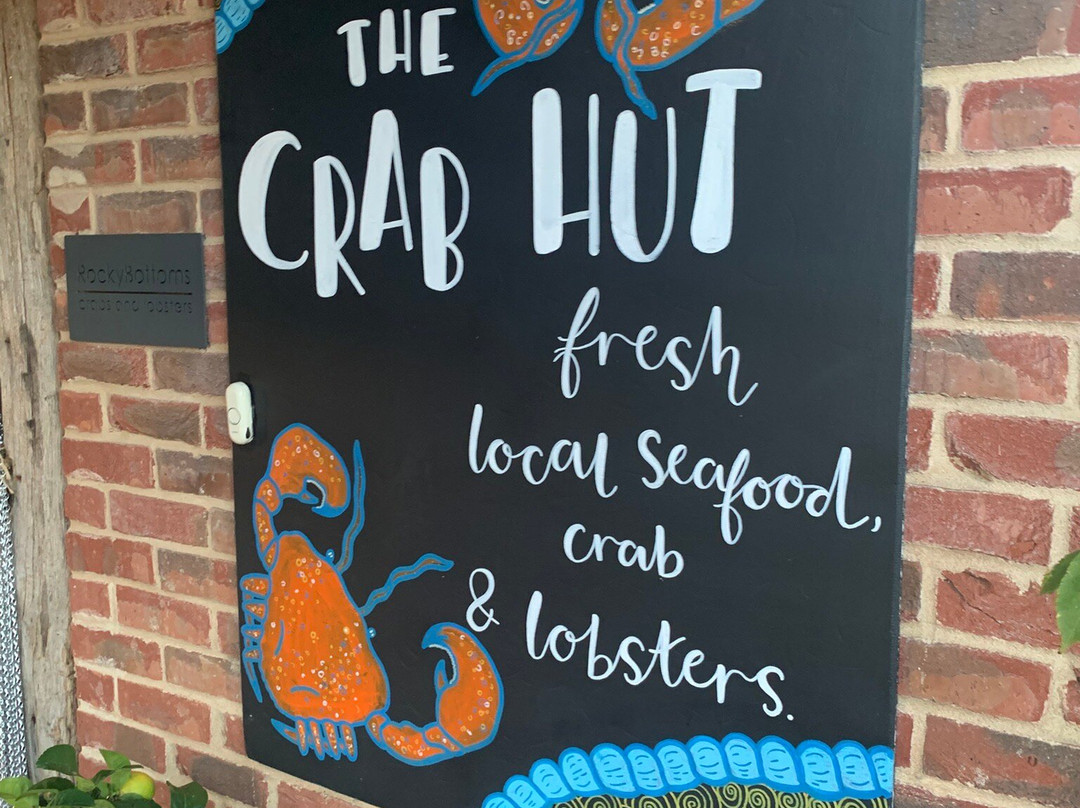 THE
CRAB HUT
fresh
local seafood,
crab
& lobsters.
RockyBottoms
crabs and lobsters